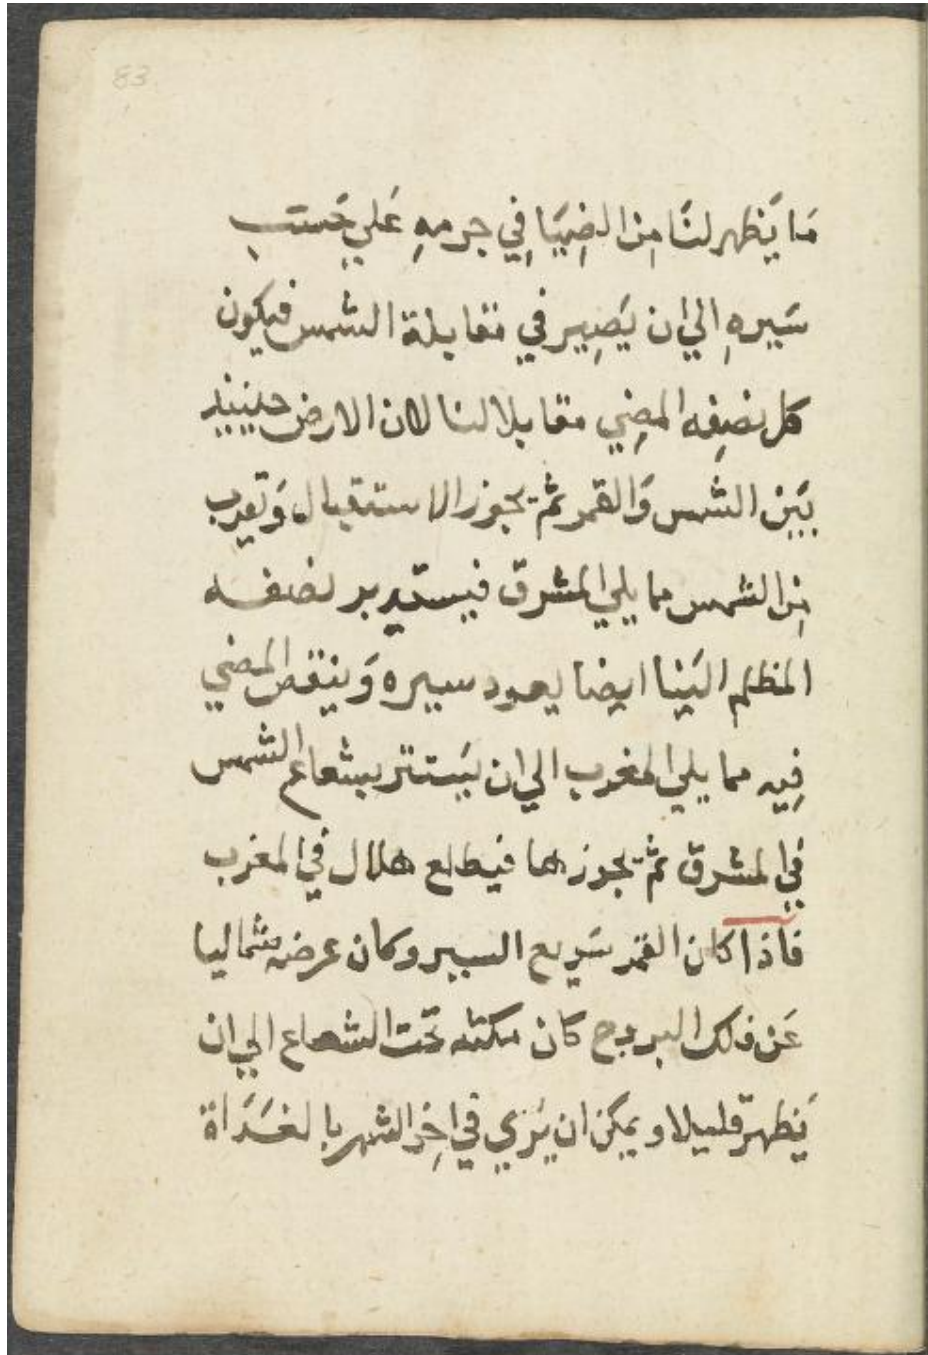 83
مَا يَظهر لنَا مِن الضِيَا فِي جرمهِ عَلي حَسَب
سَيرهِ الي ان يَصِير في مقابلة الشمس فيكون
كل نصِفه المضِي مقابلا لنا لان الارض حينيذ
بَين الشمس وَالقمر ثم يجوز الاستقبال وَتقرب
مِن الشمس مما يلي المشرق فيستدير نصفه
المظلم اليَنا ايضا يعود سيره وَينقص المضي
فِيه مما يلي المغرب الي ان يَستتر بشعاع الشمس
في المشرق ثم يجوزها فيطلع هلال في المغرب
فاذا كان القمر سَريع السير وكان عرضه شماليا
عَن فلك البروج كان مكثه تحت الشعاع الي ان
يَظهر قليلا ويمكن ان يَري في اخِر الشهر بالغَدَاة